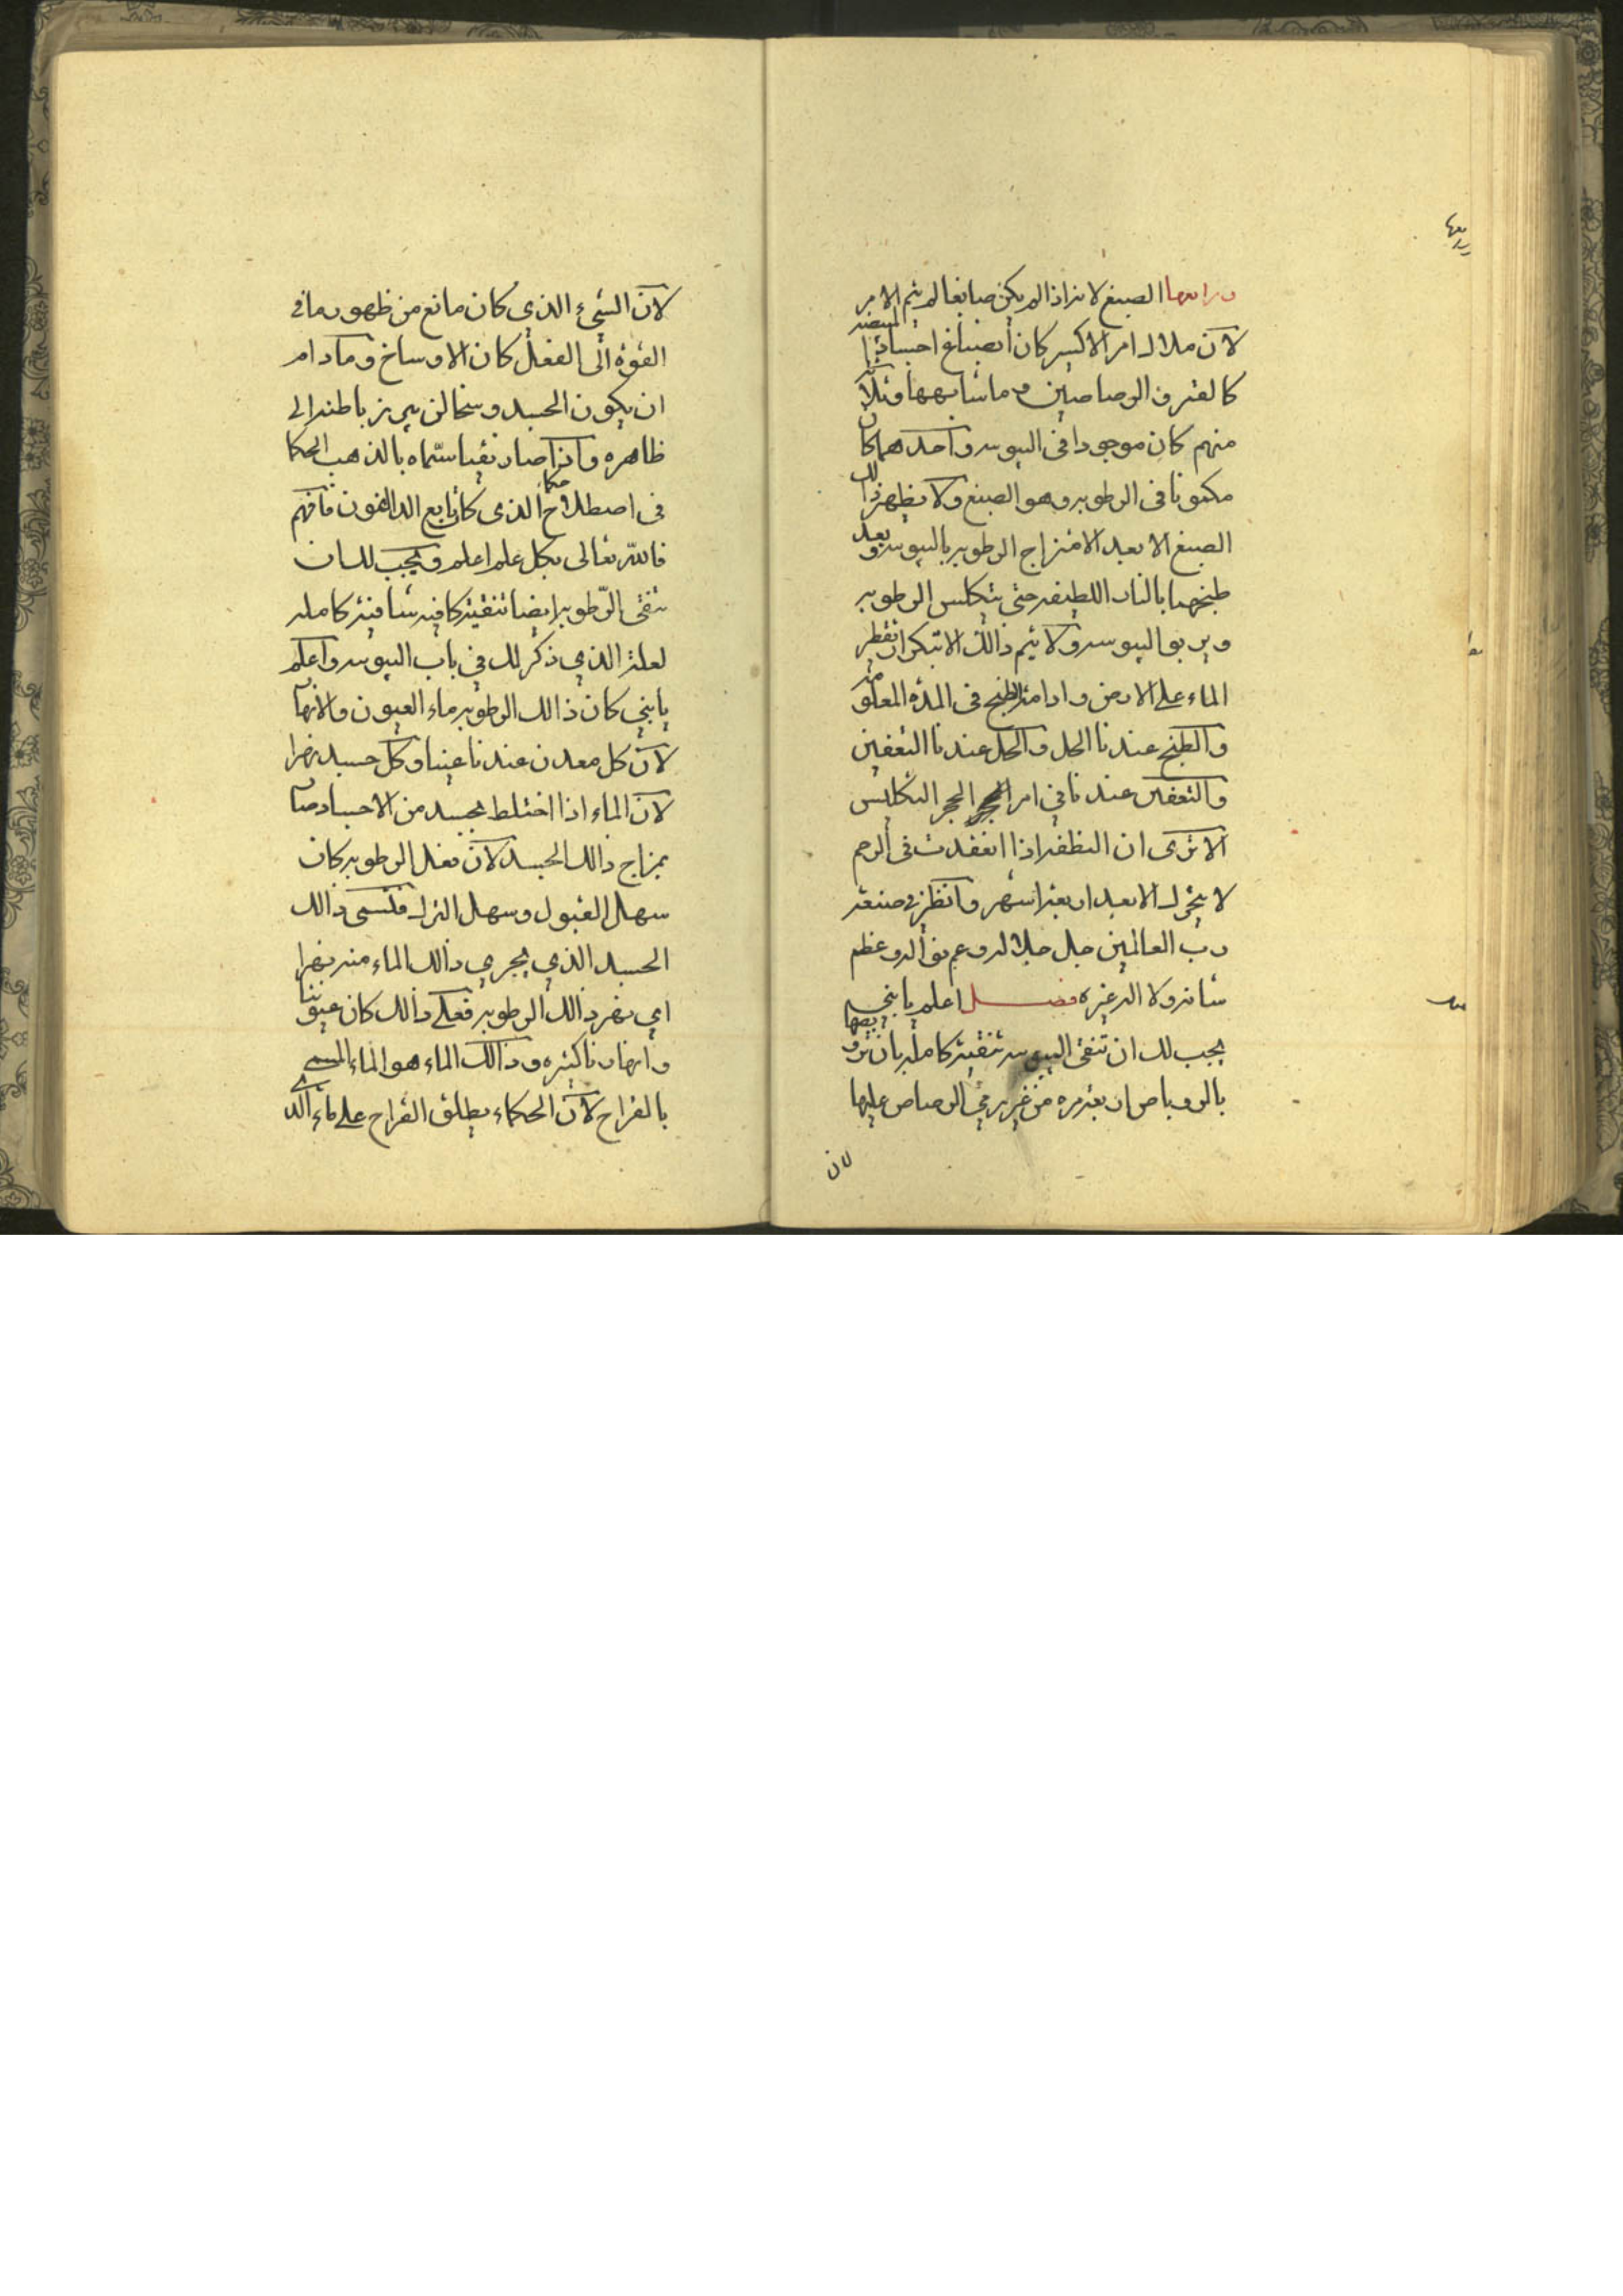 ورابعها الصبغ لانه اذا لم يكن صابغا لم يتم الامر
لان ملاك امر الاكسير كان انصباغ اجسادنا المبيضه
كالقمر والرصاصين وما شابهها وكلا
منهم كان موجودا فى اليبوسه واحدهما كان
مكنونا فى الرطوبه وهو الصبغ ولا يظهر ذالك
الصبغ الا بعد الامتزاج الرطوبه باليبوسه وبعد
طبخهما بالنار اللطيفه حتى يتكلس الرطوبه
ويربو اليبوسه ولا يتم ذالك الا بتكرار تقطير
الماء على الارض وادامة الطبخ فى المدة المعلومه
والطبخ عندنا الحل والحل عندنا التعفين
والتعفين عندنا في امر الحجر التكليس
الا ترى ان النطفه اذا انعقدت فى الرحم
لا يتحرك الا بعد اربعة اشهر وانظر فى صنعة
رب العالمين جل جلاله وعم نواله وعظم
شانه ولا اله غيره فصل اعلم يا بني
يجب لك ان تنقى اليبوسه تنقية كاملة بان تروبصها
بالروباص اربعة مره من غير رمي الرصاص عليها
لان
لان الشيء الذى كان مانع من ظهور ما فى
القوة الى الفعل كان الاوساخ وما دام
ان يكون الجسد وسخا لن يبرز باطنه الى
ظاهره واذا صار نقيا سمّاه بالذهب الحكما
في اصطلاح الذى كان تابع الدالفون فافهم
فالله تعالى بكل علم اعلم ويجب لك ان
تنقى الرّطوبه ايضا تنقية كافيه شافية كامله
لعلة الذي ذكر لك في باب اليبوسه واعلم
يا بني كان ذالك الرطوبه ماء العيون والانهار
لان كل معدن عندنا عينا وكل جسد نهرا
لان الماء اذا اختلط بجسد من الاجساد صار
بمزاج ذالك الجسد لان فعل الرطوبه كان
سهل القبول وسهل الترك فتسمى ذالك
الجسد الذي يجري ذالك الماء منه نهرا
اي نهر ذالك الرطوبه فعلى ذالك كان عيوننا
وانهارنا كثيره وذالك الماء هو الماء المسمى
بالقراح لان الحكماء يطلق القراح على ماء